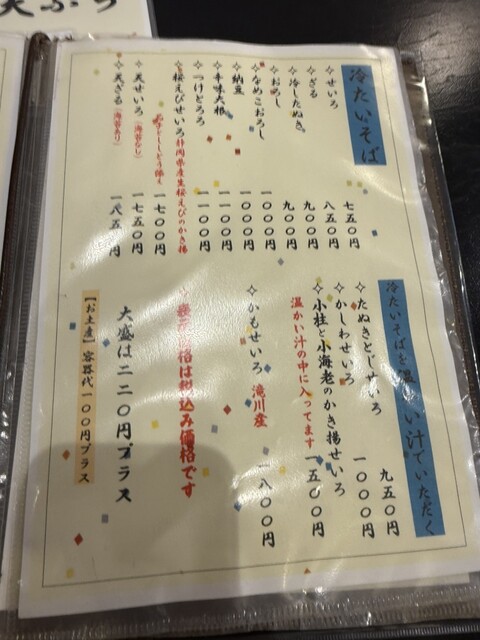 冷たいそば
せいろ 七五〇円
ざる 八五〇円
冷したぬき 九〇〇円
おろし 九〇〇円
なめこおろし 一〇〇〇円
納豆 一〇〇〇円
辛味大根 一一〇〇円
つけとろろ 一一〇〇円
桜えびせいろ 静岡県産生桜えびのかき揚 一七〇〇円
天せいろ(海苔なし) 一七五〇円
天ざる(海苔あり) 一八五〇円
冷たいそばを温かい汁でいただく
たぬきとじせいろ 九五〇円
かしわせいろ 一〇〇〇円
小柱と小海老のかき揚せいろ 一五〇〇円
温かい汁の中に入ってます
かもせいろ 滝川産 一八〇〇円
価格は税込み価格です
大盛は二二〇円プラス
【お土産】容器代一〇〇円プラス